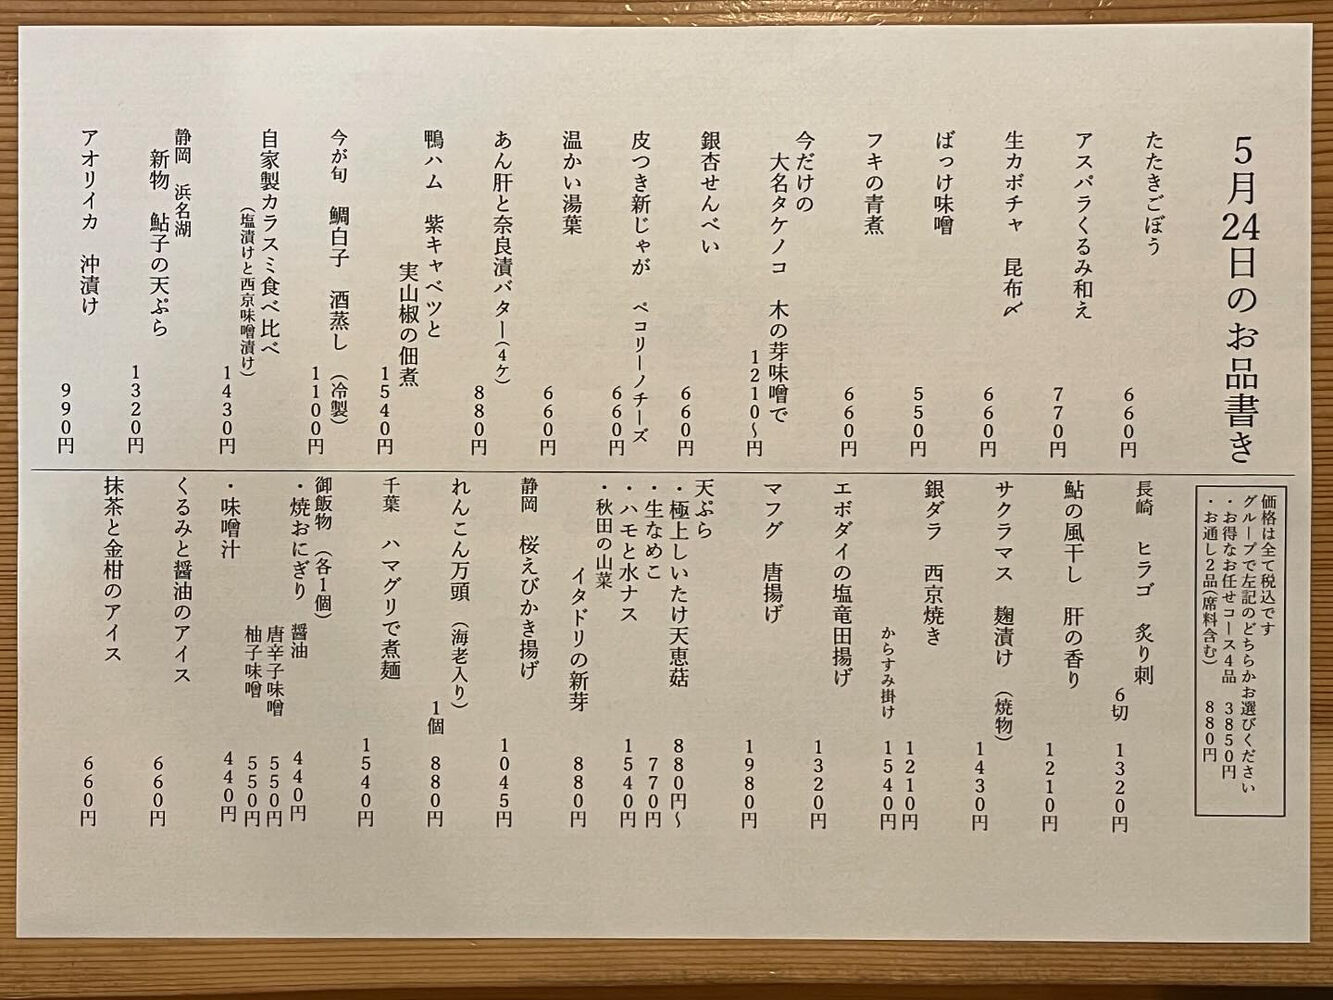 5月24日のお品書き
たたきごぼう
660円
アスパラくるみ和え
770円
生カボチャ 昆布〆
660円
ばっけ味噌
550円
フキの青煮
660円
今だけの
大名タケノコ 木の芽味噌で
1210～円
銀杏せんべい
660円
皮つき新じゃが ペコリーノチーズ
660円
温かい湯葉
660円
あん肝と奈良漬バター(4ケ)
880円
鴨ハム 紫キャベツと
実山椒の佃煮
1540円
今が旬 鯛白子 酒蒸し (冷製)
1100円
自家製カラスミ食べ比べ
(塩漬けと西京味噌漬け)
1430円
静岡 浜名湖
新物 鮎子の天ぷら
1320円
アオリイカ 沖漬け
990円
価格は全て税込です
グループで左記のどちらかお選びください
・お得なお任せコース4品 3850円
・お通し2品(席料含む) 880円
長崎 ヒラゴ 炙り刺
6切 1320円
鮎の風干し 肝の香り
1210円
サクラマス 麹漬け (焼物)
1430円
銀ダラ 西京焼き
1210円
からすみ掛け 1540円
エボダイの塩竜田揚げ
1320円
マフグ 唐揚げ
1980円
天ぷら
・極上しいたけ天恵菇 880円～
・生なめこ 770円
・ハモと水ナス 1540円
・秋田の山菜
イタドリの新芽 880円
静岡 桜えびかき揚げ
1045円
れんこん万頭 (海老入り)
1個 880円
千葉 ハマグリで煮麺
1540円
御飯物 (各1個)
・焼おにぎり 醤油 440円
唐辛子味噌 550円
柚子味噌 550円
・味噌汁 440円
くるみと醤油のアイス
660円
抹茶と金柑のアイス
660円